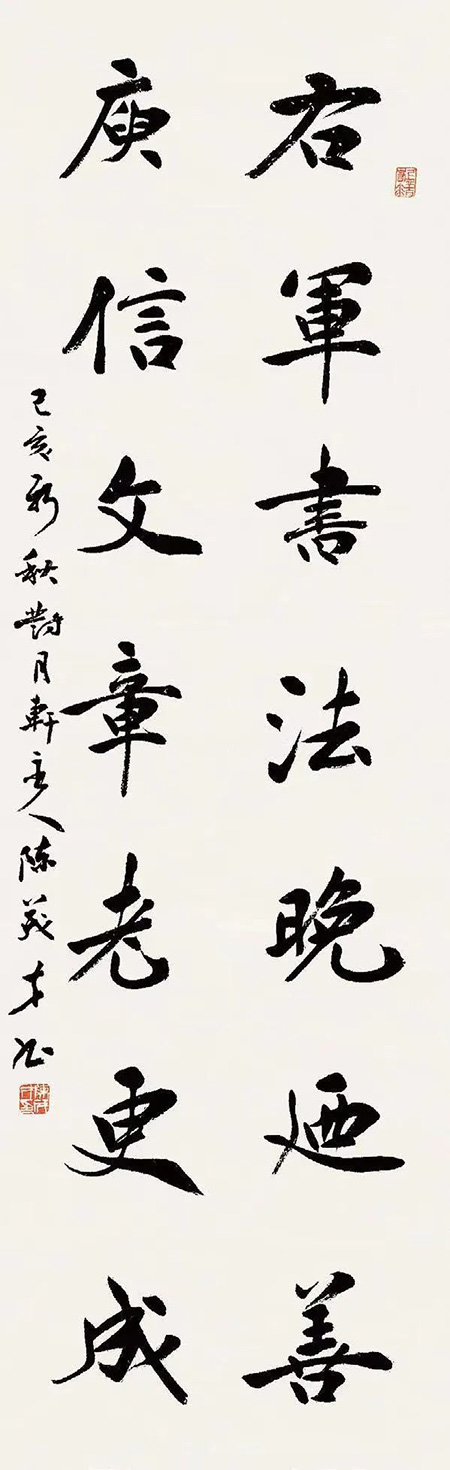 右軍書法晚迺善
庾信文章老更成
己亥新秋對月軒主人陈義才书